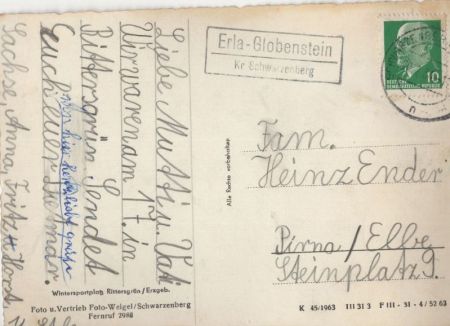 Erla-Globenstein
Kr Schwarzenberg
10
DEUTSCHE DEMOKRATISCHE REPUBLIK
Liebe Mutti u. Vati
Wir waren am 17. in
Rittersgrün. Sendet
Euch Euer Dietmar.
Von hier herzliche Grüße
Sachse, Anna, Fritz + Horst
Fam.
Heinz Ender
Pirna/Elbe
Steinplatz 9.
Alle Rechte vorbehalten
Wintersportplatz Rittersgrün/Erzgeb.
Foto u.Vertrieb Foto-Weigel/Schwarzenberg
Fernruf 2988
K 45/1963 III 31 3 F III - 31 - 4 / 52 63